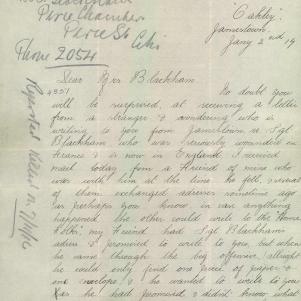 Pirie Chambers
Pirie St
City
Phone 2054
"Oakley"
Jamestown
Jany 2nd 19
Dear Mrs Blackham
4951
No doubt you
will be surprised, at receiving a letter
from a stranger & wondering who is
writing to you from Jamestown re Sgt
Blackham who was seriously wounded in
France & is now in England. I received
mail today from a friend of mine who
was with him at the time he fell, & several
of them exchanged adresses sometime ago
as perhaps you know in case anything
happened the other could write to the "Home
Folks", my friend had Sgt Blackham's
adress & promised to write to you, but when
he came through the big offensive, allright
he could only find one piece of paper &
one envelope & he wanted to write to you
as he had promised & didn't know what